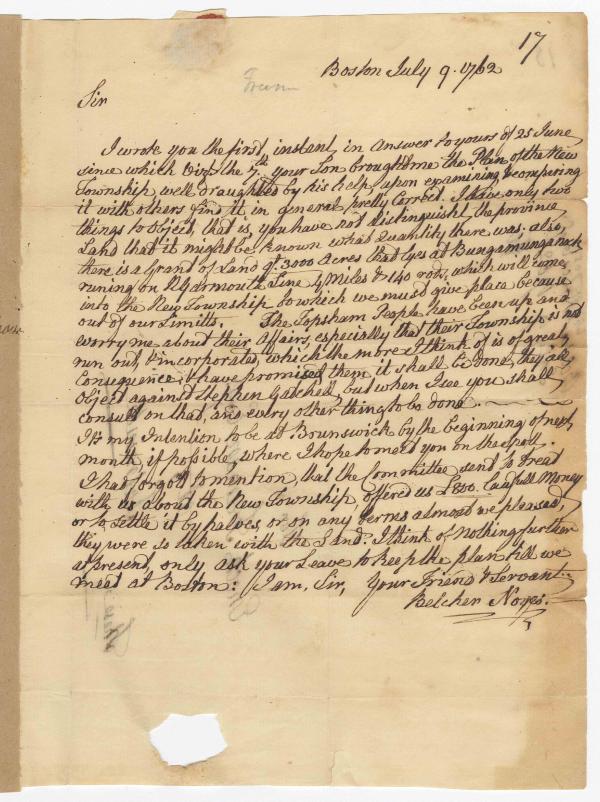 17
Boston July 9. 1762
Sir
I wrote you the first instant, in answer to yours of 25 June
since which Viz the 7th your Son brought me the Plan of the New
Township well draughted by his help, upon examining & comparing
it with others find it in general pretty Correct. I have only two
things to Object, that is, you have not distinguisht the province
Land that it might be known what Quantity there was: also,
there is a Grant of Land qt. 3000 Acres that lyes at Bungamunganock
runing on N. Yarmouth Line 4 Miles & 140 rods, which will come
into the New Township to which we must give place because
out of our Limitts. The Topsham People have been up and
worry me about their Affairs, especially that their Township is not
run out, & incorporated, which the more I think of is of great
Consequence, & have promised them it shall be done, they all
object against Stephen Gatchell, but when I see you shall
consult on that, and every other thing to be done.
It's my Intention to be at Brunswick by the beginning of next
month, if possible, where I hope to meet you on the spot.
I had forgott to mention, that the Committee send to treat
with us about the New Township offered us £800. Lawfull Money
or to settle it by halves, or on any terms almost we pleased,
they were so taken with the Land. I think of nothing further
at present, only ask your Leave to keep the plan till we
meet at Boston: I am, Sir, Your Friend & Servant
Belcher Noyes.